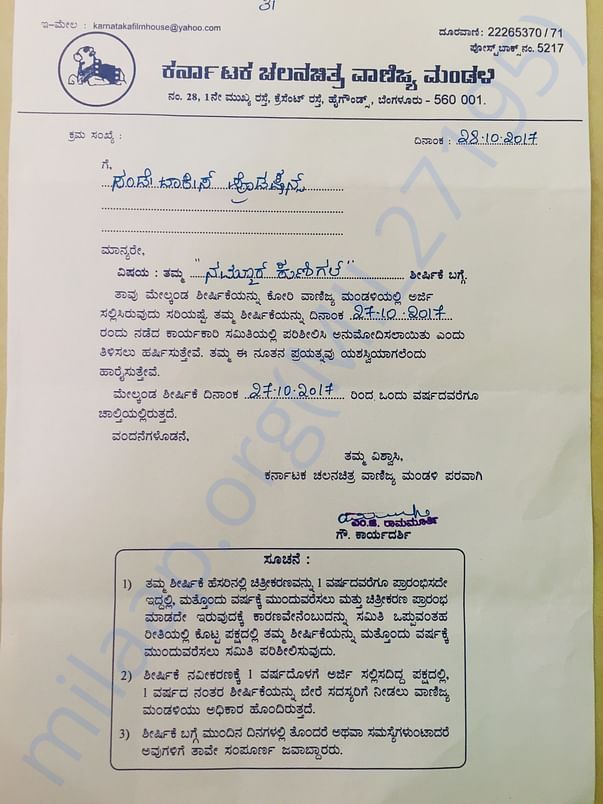 31
ಇ-ಮೇಲ : karnatakafilmhouse@yahoo.com
ದೂರವಾಣಿ: 22265370 / 71
ಪೋಸ್ಟ್‌ಬಾಕ್ಸ್ ನಂ. 5217
ಕರ್ನಾಟಕ ಚಲನಚಿತ್ರ ವಾಣಿಜ್ಯ ಮಂಡಳಿ
ನಂ. 28, 1ನೇ ಮುಖ್ಯ ರಸ್ತೆ, ಕ್ರೆಸೆಂಟ್ ರಸ್ತೆ, ಹೈಗೌಂಡ್ಸ್, ಬೆಂಗಳೂರು - 560 001.
ಕ್ರಮ ಸಂಖ್ಯೆ :
ದಿನಾಂಕ : 28.10.2017
ಗೆ,
ಸಂಡೇ ಟಾಕೀಸ್
ಮಾನ್ಯರೇ,
ವಿಷಯ : ತಮ್ಮ "ನಮ್ಮೂರ್ ಕುಣಿಗಲ್" ಶೀರ್ಷಿಕೆ ಬಗ್ಗೆ.
ತಾವು ಮೇಲ್ಕಂಡ ಶೀರ್ಷಿಕೆಯನ್ನು ಕೋರಿ ವಾಣಿಜ್ಯ ಮಂಡಳಿಯಲ್ಲಿ ಅರ್ಜಿ
ಸಲ್ಲಿಸಿರುವುದು ಸರಿಯಷ್ಟೆ. ತಮ್ಮ ಶೀರ್ಷಿಕೆಯನ್ನು ದಿನಾಂಕ 27.10.2017
ರಂದು ನಡೆದ ಕಾರ್ಯಕಾರಿ ಸಮಿತಿಯಲ್ಲಿ ಪರಿಶೀಲಿಸಿ ಅನುಮೋದಿಸಲಾಯಿತು ಎಂದು
ತಿಳಿಸಲು ಹರ್ಷಿಸುತ್ತೇವೆ. ತಮ್ಮ ಈ ನೂತನ ಪ್ರಯತ್ನವು ಯಶಸ್ವಿಯಾಗಲೆಂದು
ಹಾರೈಸುತ್ತೇವೆ.
ಮೇಲ್ಕಂಡ ಶೀರ್ಷಿಕೆ ದಿನಾಂಕ 27.10.2017 ರಿಂದ ಒಂದು ವರ್ಷದವರೆಗೂ
ಚಾಲ್ತಿಯಲ್ಲಿರುತ್ತದೆ.
ವಂದನೆಗಳೊಡನೆ,
ತಮ್ಮ ವಿಶ್ವಾಸಿ,
ಕರ್ನಾಟಕ ಚಲನಚಿತ್ರ ವಾಣಿಜ್ಯ ಮಂಡಳಿ ಪರವಾಗಿ
ಎಂ.ಜಿ. ರಾಮಮೂರ್ತಿ
ಗೌ. ಕಾರ್ಯದರ್ಶಿ
ಸೂಚನೆ :
1) ತಮ್ಮ ಶೀರ್ಷಿಕೆ ಹೆಸರಿನಲ್ಲಿ ಚಿತ್ರೀಕರಣವನ್ನು 1 ವರ್ಷದವರೆಗೂ ಪ್ರಾರಂಭಿಸದೇ
ಇದ್ದಲ್ಲಿ, ಮತ್ತೊಂದು ವರ್ಷಕ್ಕೆ ಮುಂದುವರೆಸಲು ಮತ್ತು ಚಿತ್ರೀಕರಣ ಪ್ರಾರಂಭ
ಮಾಡದೇ ಇರುವುದಕ್ಕೆ ಕಾರಣವೇನೆಂಬುದನ್ನು ಸಮಿತಿ ಒಪ್ಪುವಂತಹ
ರೀತಿಯಲ್ಲಿ ಕೊಟ್ಟ ಪಕ್ಷದಲ್ಲಿ ತಮ್ಮ ಶೀರ್ಷಿಕೆಯನ್ನು ಮತ್ತೊಂದು ವರ್ಷಕ್ಕೆ
ಮುಂದುವರೆಸಲು ಸಮಿತಿ ಪರಿಶೀಲಿಸುವುದು.
2) ಶೀರ್ಷಿಕೆ ನವೀಕರಣಕ್ಕೆ 1 ವರ್ಷದೊಳಗೆ ಅರ್ಜಿ ಸಲ್ಲಿಸದಿದ್ದ ಪಕ್ಷದಲ್ಲಿ,
1 ವರ್ಷದ ನಂತರ ಶೀರ್ಷಿಕೆಯನ್ನು ಬೇರೆ ಸದಸ್ಯರಿಗೆ ನೀಡಲು ವಾಣಿಜ್ಯ
ಮಂಡಳಿಯು ಅಧಿಕಾರ ಹೊಂದಿರುತ್ತದೆ.
3) ಶೀರ್ಷಿಕೆ ಬಗ್ಗೆ ಮುಂದಿನ ದಿನಗಳಲ್ಲಿ ತೊಂದರೆ ಅಥವಾ ಸಮಸ್ಯೆಗಳುಂಟಾದರೆ
ಅವುಗಳಿಗೆ ತಾವೇ ಸಂಪೂರ್ಣ ಜವಾಬ್ದಾರರು.
milaap.org(MIL_271195)